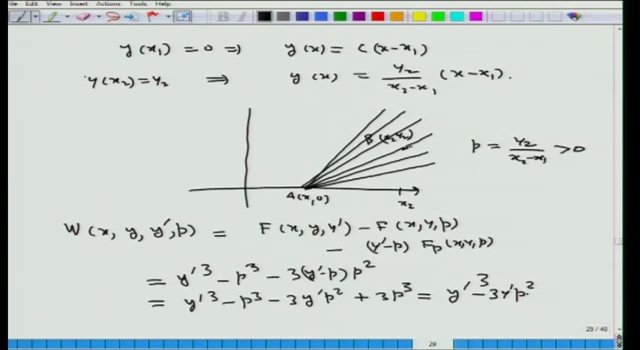 File Edit View Insert Actions Tools Help
y(x₁) = 0 ⇒ y(x) = C(x-x₁)
y(x₂) = y₂ ⇒ y(x) = y₂/(x₂-x₁) (x-x₁).
B(x₂,y₂)
p = y₂/(x₂-x₁) > 0
A(x₁,0) x₂
W(x, y, y', p) = F(x, y, y') - F(x, y, p)
- (y'-p) Fp(x,y,p)
= y'³ - p³ - 3(y'-p)p²
= y'³ - p³ - 3y'p² + 3p³ = y'³ - 3y'p²
29 / 40
29